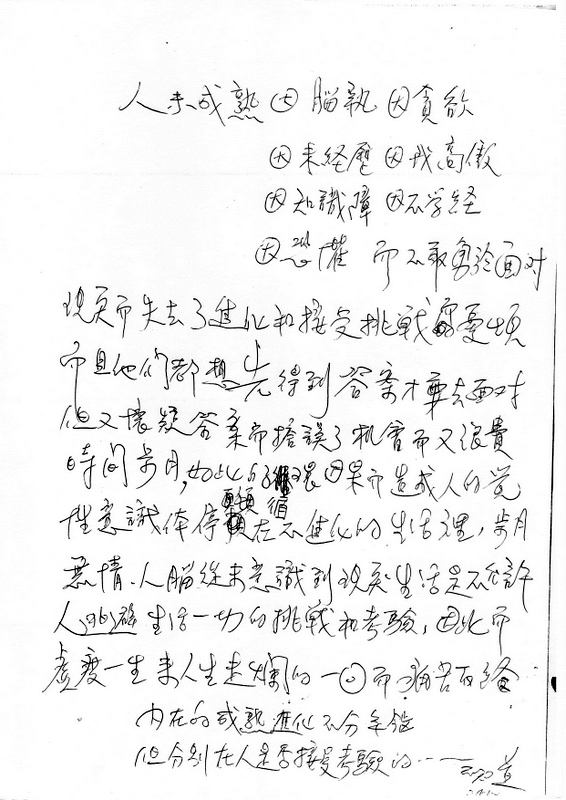 人未成熟 因脳執 因貪欲
因未経歷 因我高傲
因知識障 因不学経
因恐懼 而不敢勇於面对
現実而失去了進化和接受挑戦
而且他们都想先得到答案才要去面对
但又懐疑答案而擔誤了机會而又浪費
時間歩月，如此的循環因果而造成人的覚
性意識体停頓在不進化的生活裡，歩月
無情、人脳從未意識到現実生活是不允許
人逃避生活一切的挑戦和考驗，因此而
虚度一生 来人生走 的一回而痛苦
内在的成熟進化不分年龄
但分别在人是否接受考驗的……